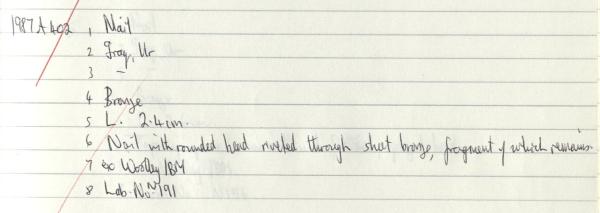 1987A402 1 Nail
2 Iraq, Ur
3 –
4 Bronze
5 L. 2.4cm.
6 Nail with rounded head riveted through sheet bronze, fragment of which remains.
7 ex Woolley/BM
8 Lab. No. 191